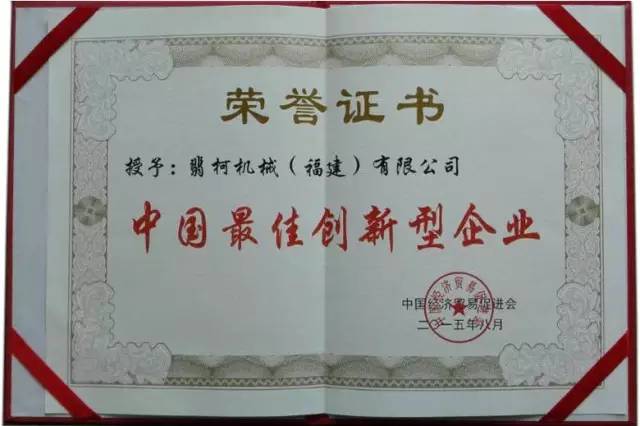 荣誉证书
授予：翡柯机械（福建）有限公司
中国最佳创新型企业
中国经济贸易促进会
二〇一五年八月